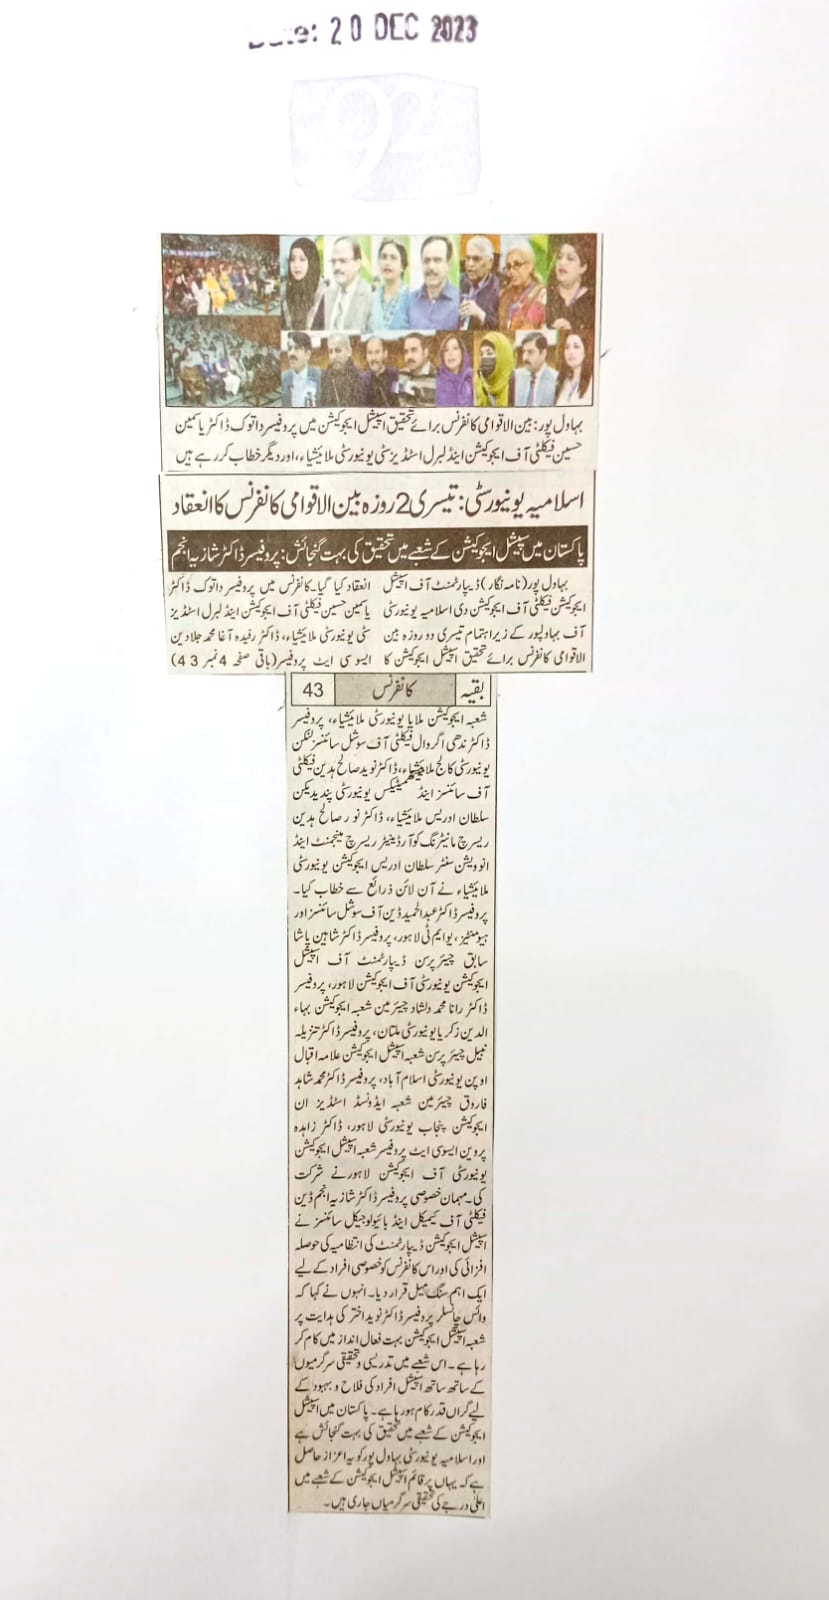 Date: 20 DEC 2023
92
بہاول پور: بین الاقوامی کانفرنس برائے تحقیق اسپیشل ایجوکیشن میں پروفیسر داتوک ڈاکٹر یاسمین
حسین فیکلٹی آف ایجوکیشن اینڈ لبرل اسٹڈیز سٹی یونیورسٹی ملائیشیاء، اور دیگر خطاب کر رہے ہیں
اسلامیہ یونیورسٹی: تیسری 2 روزہ بین الاقوامی کانفرنس کا انعقاد
پاکستان میں سپیشل ایجوکیشن کے شعبے میں تحقیق کی بہت گنجائش: پروفیسر ڈاکٹر شازیہ انجم
بہاول پور (نامہ نگار) ڈیپارٹمنٹ آف اسپیشل
ایجوکیشن فیکلٹی آف ایجوکیشن دی اسلامیہ یونیورسٹی
آف بہاولپور کے زیر اہتمام تیسری دو روزہ بین
الاقوامی کانفرنس برائے تحقیق اسپیشل ایجوکیشن کا
انعقاد کیا گیا۔ کانفرنس میں پروفیسر داتوک ڈاکٹر
یاسمین حسین فیکلٹی آف ایجوکیشن اینڈ لبرل اسٹڈیز
سٹی یونیورسٹی ملائیشیاء، ڈاکٹر رفیدہ آغا محمد جلادین
ایسوسی ایٹ پروفیسر (باقی صفحہ 4 نمبر 43)
بقیہ کانفرنس 43
شعبہ ایجوکیشن ملایا یونیورسٹی ملائیشیاء، پروفیسر
ڈاکٹر ندھی اگروال فیکلٹی آف سوشل سائنسز لنکن
یونیورسٹی کالج ملائیشیاء، ڈاکٹر نوید صالح ہدین فیکلٹی
آف سائنسز اینڈ میتھمیٹیکس یونیورسٹی پندیدیکن
سلطان ادریس ملائیشیاء، ڈاکٹر نور صالح ہدین
ریسرچ مانیٹرنگ کوآرڈینیٹر ریسرچ مینجمنٹ اینڈ
انوویشن سنٹر سلطان ادریس ایجوکیشن یونیورسٹی
ملائیشیاء نے آن لائن ذرائع سے خطاب کیا۔
پروفیسر ڈاکٹر عبدالحمید ڈین آف سوشل سائنسز اور
ہیومنٹیز، یو ایم ٹی لاہور، پروفیسر ڈاکٹر شاہین پاشا
سابق چیئر پرسن ڈیپارٹمنٹ آف اسپیشل
ایجوکیشن یونیورسٹی آف ایجوکیشن لاہور، پروفیسر
ڈاکٹر رانا محمد دلشاد چیئرمین شعبہ ایجوکیشن بہاء
الدین زکریا یونیورسٹی ملتان، پروفیسر ڈاکٹر تنزیلہ
نبیل چیئر پرسن شعبہ اسپیشل ایجوکیشن علامہ اقبال
اوپن یونیورسٹی اسلام آباد، پروفیسر ڈاکٹر محمد شاہد
فاروق چیئرمین شعبہ ایڈونسڈ اسٹڈیز ان
ایجوکیشن پنجاب یونیورسٹی لاہور، ڈاکٹر زاہدہ
پروین ایسوسی ایٹ پروفیسر شعبہ اسپیشل ایجوکیشن
یونیورسٹی آف ایجوکیشن لاہور نے شرکت
کی۔ مہمان خصوصی پروفیسر ڈاکٹر شازیہ انجم ڈین
فیکلٹی آف کیمیکل اینڈ بائیولوجیکل سائنسز نے
اسپیشل ایجوکیشن ڈیپارٹمنٹ کی انتظامیہ کی حوصلہ
افزائی کی اور اس کانفرنس کو خصوصی افراد کے لیے
ایک اہم سنگ میل قرار دیا۔ انہوں نے کہا کہ
وائس چانسلر پروفیسر ڈاکٹر نوید اختر کی ہدایت پر
شعبہ اسپیشل ایجوکیشن بہت فعال انداز میں کام کر
رہا ہے۔ اس شعبے میں تدریسی و تحقیقی سرگرمیوں
کے ساتھ ساتھ اسپیشل افراد کی فلاح و بہبود کے
لیے گراں قدر کام ہو رہا ہے۔ پاکستان میں اسپیشل
ایجوکیشن کے شعبے میں تحقیق کی بہت گنجائش ہے
اور اسلامیہ یونیورسٹی بہاول پور کو یہ اعزاز حاصل
ہے کہ یہاں پر قائم اسپیشل ایجوکیشن کے شعبے میں
اعلیٰ درجے کی تحقیقی سرگرمیاں جاری ہیں۔